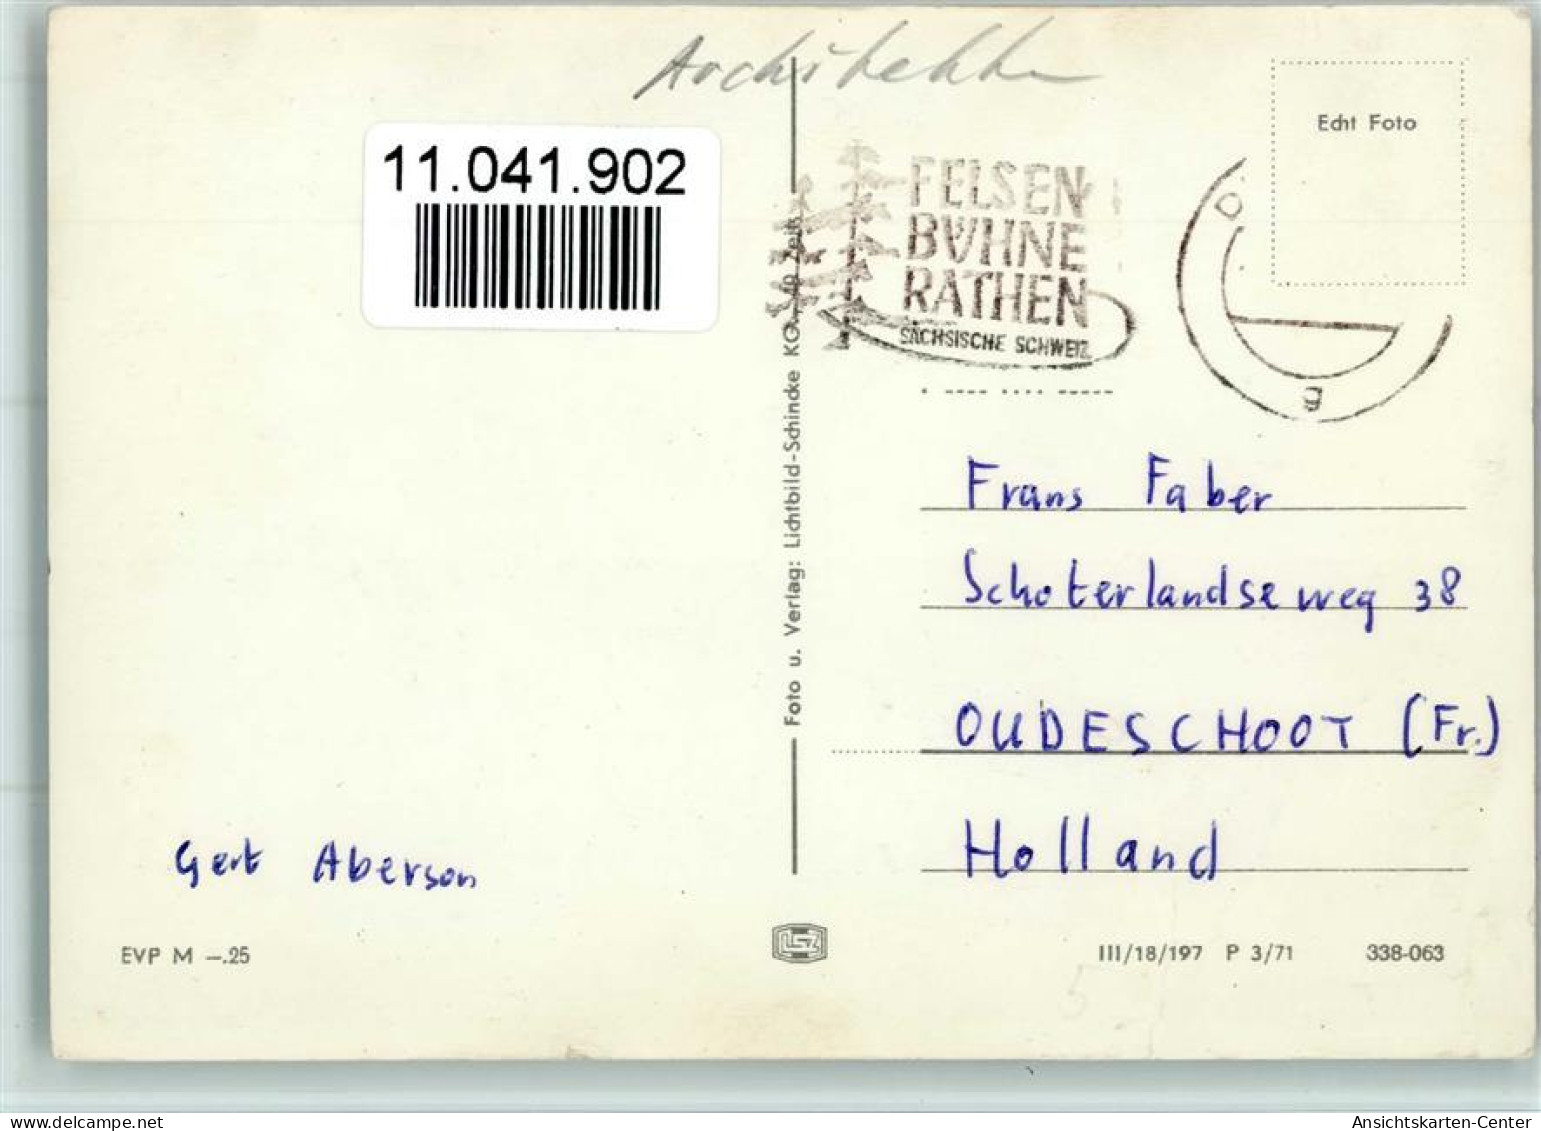 Architektur
11.041.902
Echt Foto
FELSEN
BVHNE
RATHEN
SÄCHSISCHE SCHWEIZ
D
g
Foto u. Verlag: Lichtbild-Schincke KG., 49 Zeitz
Frans Faber
Schoterlandseweg 38
OUDESCHOOT (Fr.)
Holland
Gert Aberson
EVP M —.25
III/18/197 P 3/71 338-063
5
delcampe.net
Ansichtskarten-Center